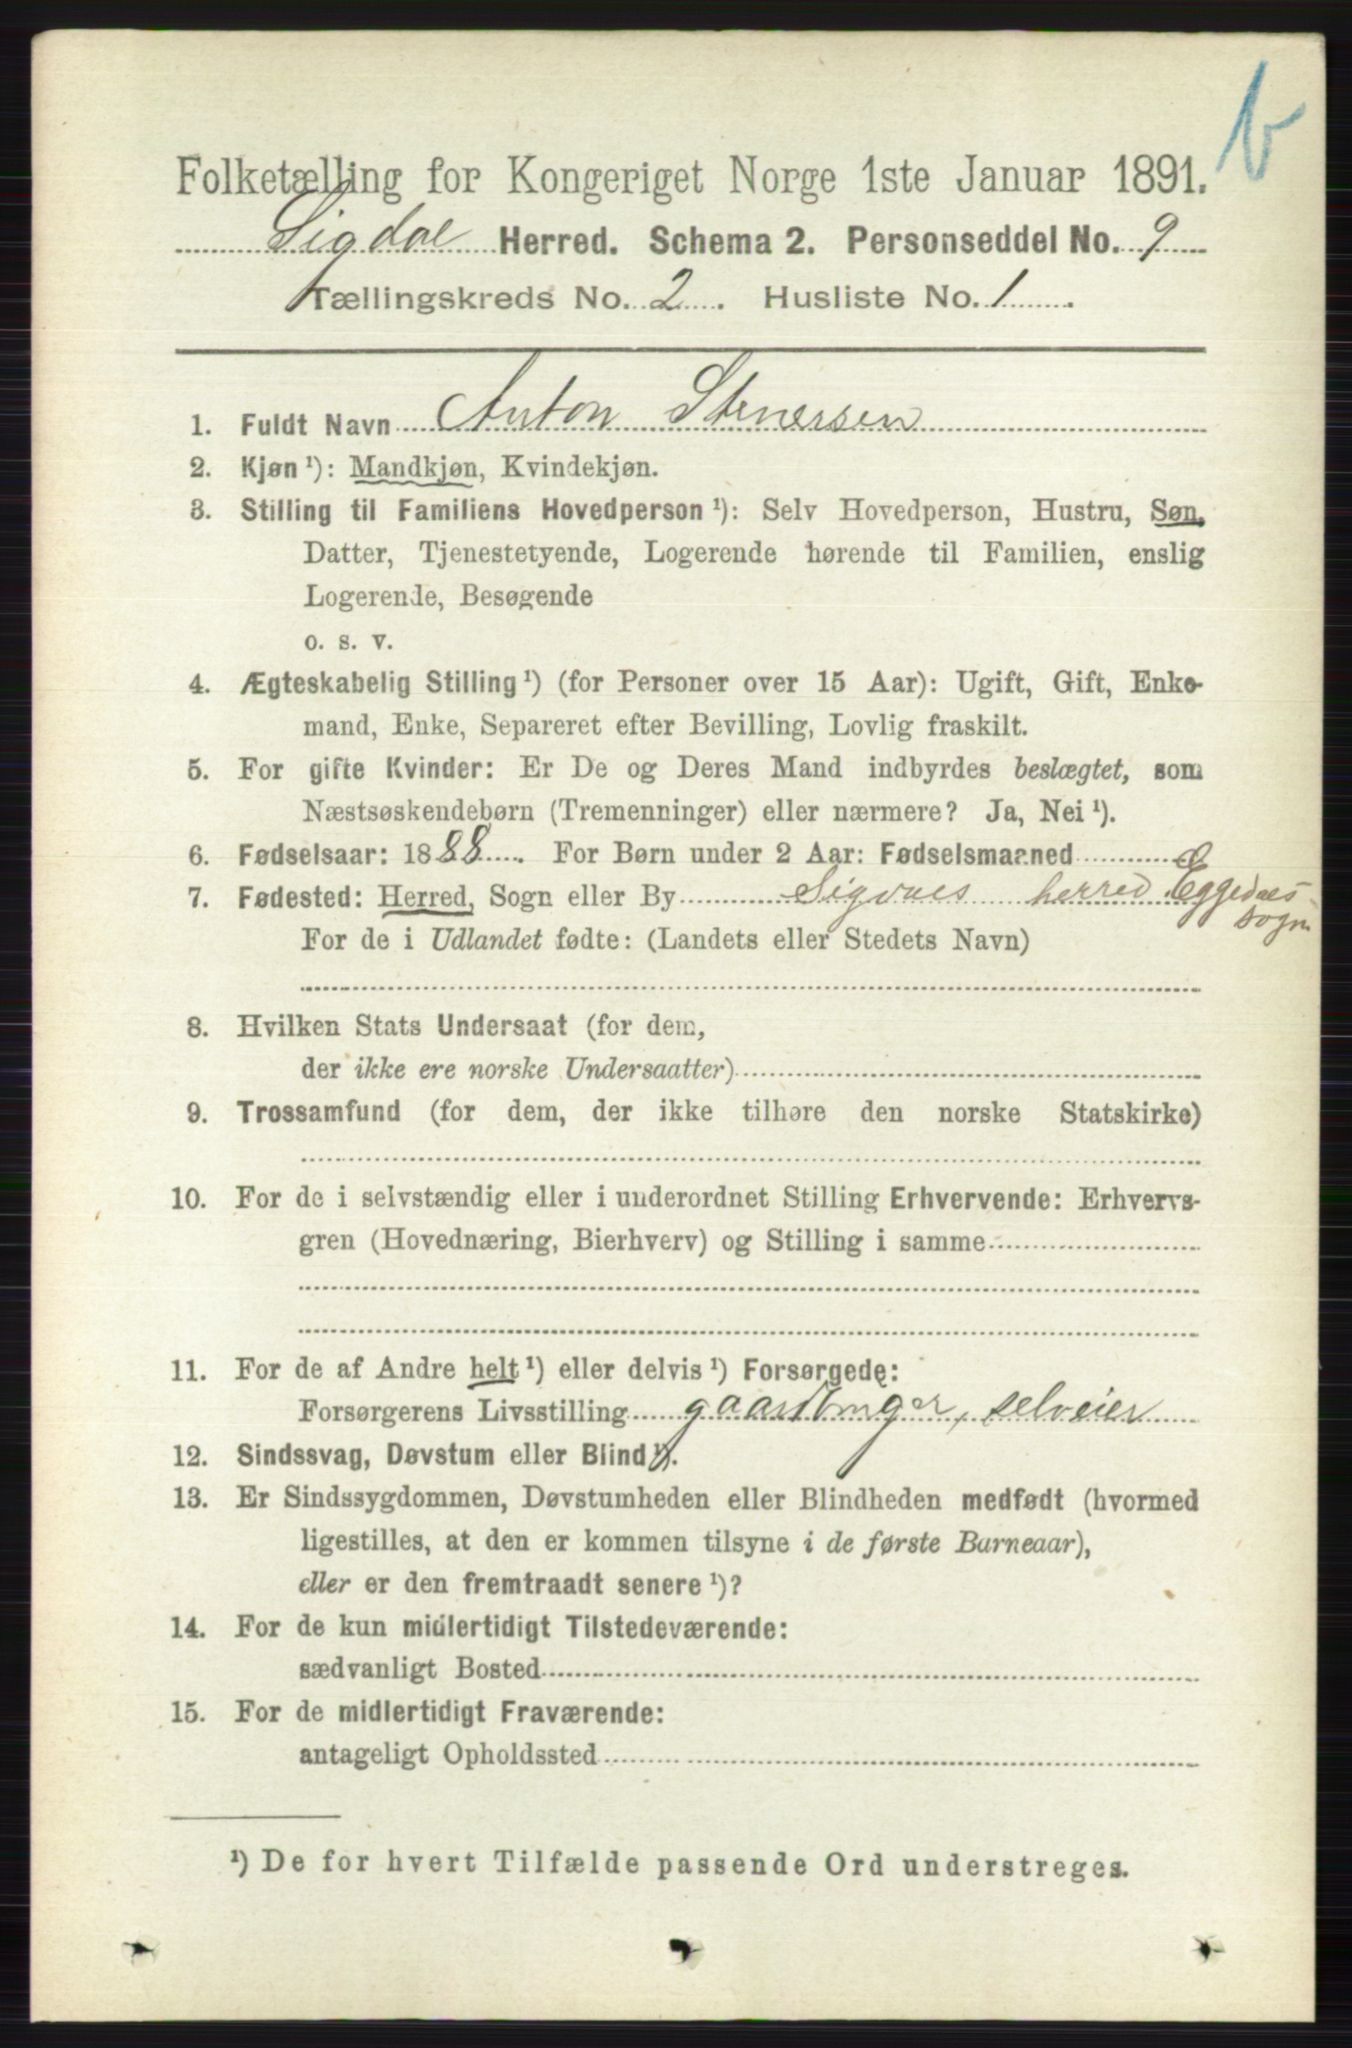 b
Folketælling for Kongeriget Norge 1ste Januar 1891.
Sigdal Herred. Schema 2. Personseddel No. 9
Tællingskreds No. 2. Husliste No. 1.
1. Fuldt Navn Anton Stenersen
2. Kjøn ¹): Mandkjøn, Kvindekjøn.
3. Stilling til Familiens Hovedperson ¹): Selv Hovedperson, Hustru, Søn,
Datter, Tjenestetyende, Logerende hørende til Familien, enslig
Logerende, Besøgende
o. s. v.
4. Ægteskabelig Stilling ¹) (for Personer over 15 Aar): Ugift, Gift, Enke-
mand, Enke, Separeret efter Bevilling, Lovlig fraskilt.
5. For gifte Kvinder: Er De og Deres Mand indbyrdes beslægtet, som
Næstsøskendebørn (Tremenninger) eller nærmere? Ja, Nei ¹).
6. Fødselsaar: 1888. For Børn under 2 Aar: Fødselsmaaned
7. Fødested: Herred, Sogn eller By Sigdals herred Eggedals
sogn
For de i Udlandet fødte: (Landets eller Stedets Navn)
8. Hvilken Stats Undersaat (for dem,
der ikke ere norske Undersaatter)
9. Trossamfund (for dem, der ikke tilhøre den norske Statskirke)
10. For de i selvstændig eller i underordnet Stilling Erhvervende: Erhvervs-
gren (Hovednæring, Bierhverv) og Stilling i samme
11. For de af Andre helt ¹) eller delvis ¹) Forsørgede:
Forsørgerens Livsstilling gaardbruger, selveier
12. Sindssvag, Døvstum eller Blind ¹).
13. Er Sindssygdommen, Døvstumheden eller Blindheden medfødt (hvormed
ligestilles, at den er kommen tilsyne i de første Barneaar),
eller er den fremtraadt senere ¹)?
14. For de kun midlertidigt Tilstedeværende:
sædvanligt Bosted
15. For de midlertidigt Fraværende:
antageligt Opholdssted
¹) De for hvert Tilfælde passende Ord understreges.